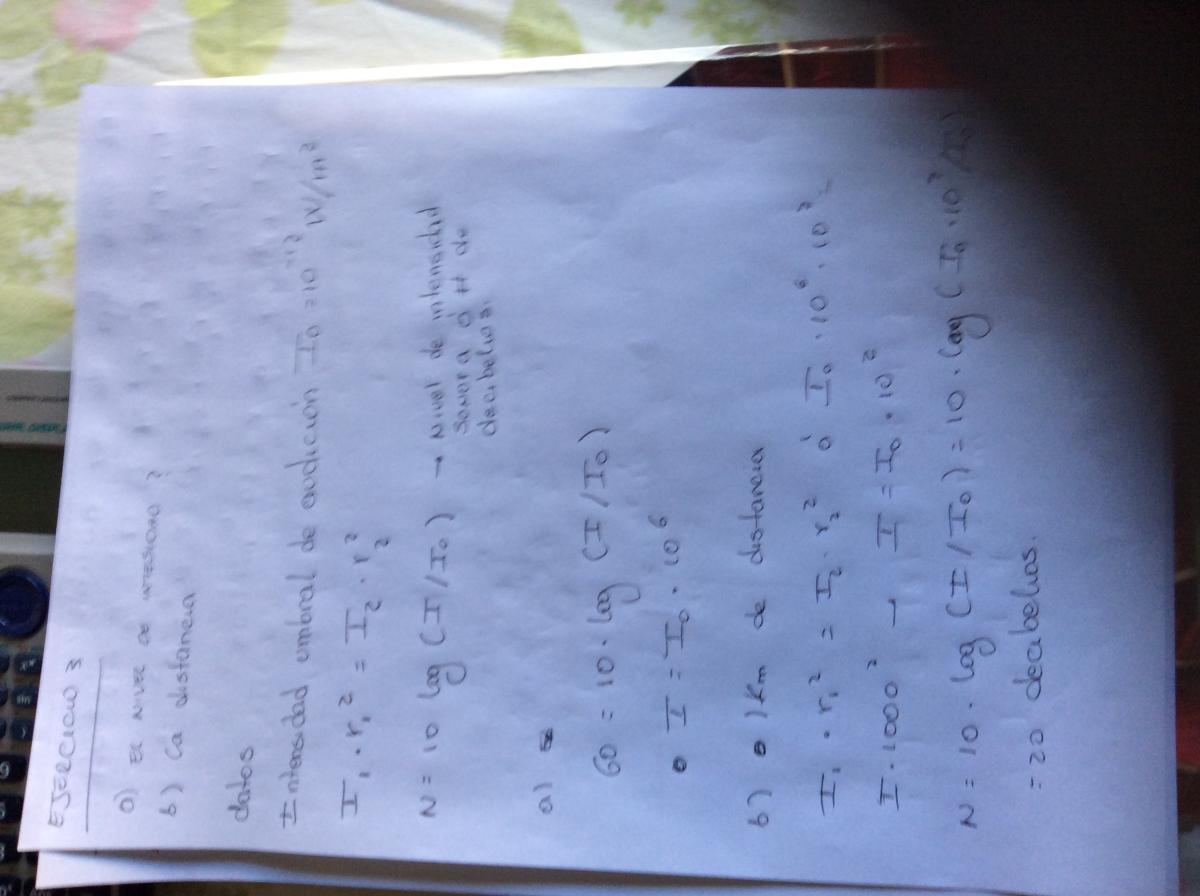 EJERCICIO 3
a) El nivel de intesidad ?
b) La distancia
datos
Intensidad umbral de audición I₀ = 10⁻¹² W/m²
I₁ · r₁² = I₂ · r₂²
N = 10 log (I/I₀) → Nivel de intensidad
sonora ó # de
decibelios.
a)
60 = 10 · log (I/I₀)
• I = I₀ · 10⁶
b) • 1 Km de distancia
I₁ · r₁² = I₂ · r₂² ó I₀ · 10⁶ · 10²
I · 1000² → I = I₀ · 10²
N = 10 · log (I/I₀) = 10 · log (I₀ · 10²/I₀)
= 20 decibelios.